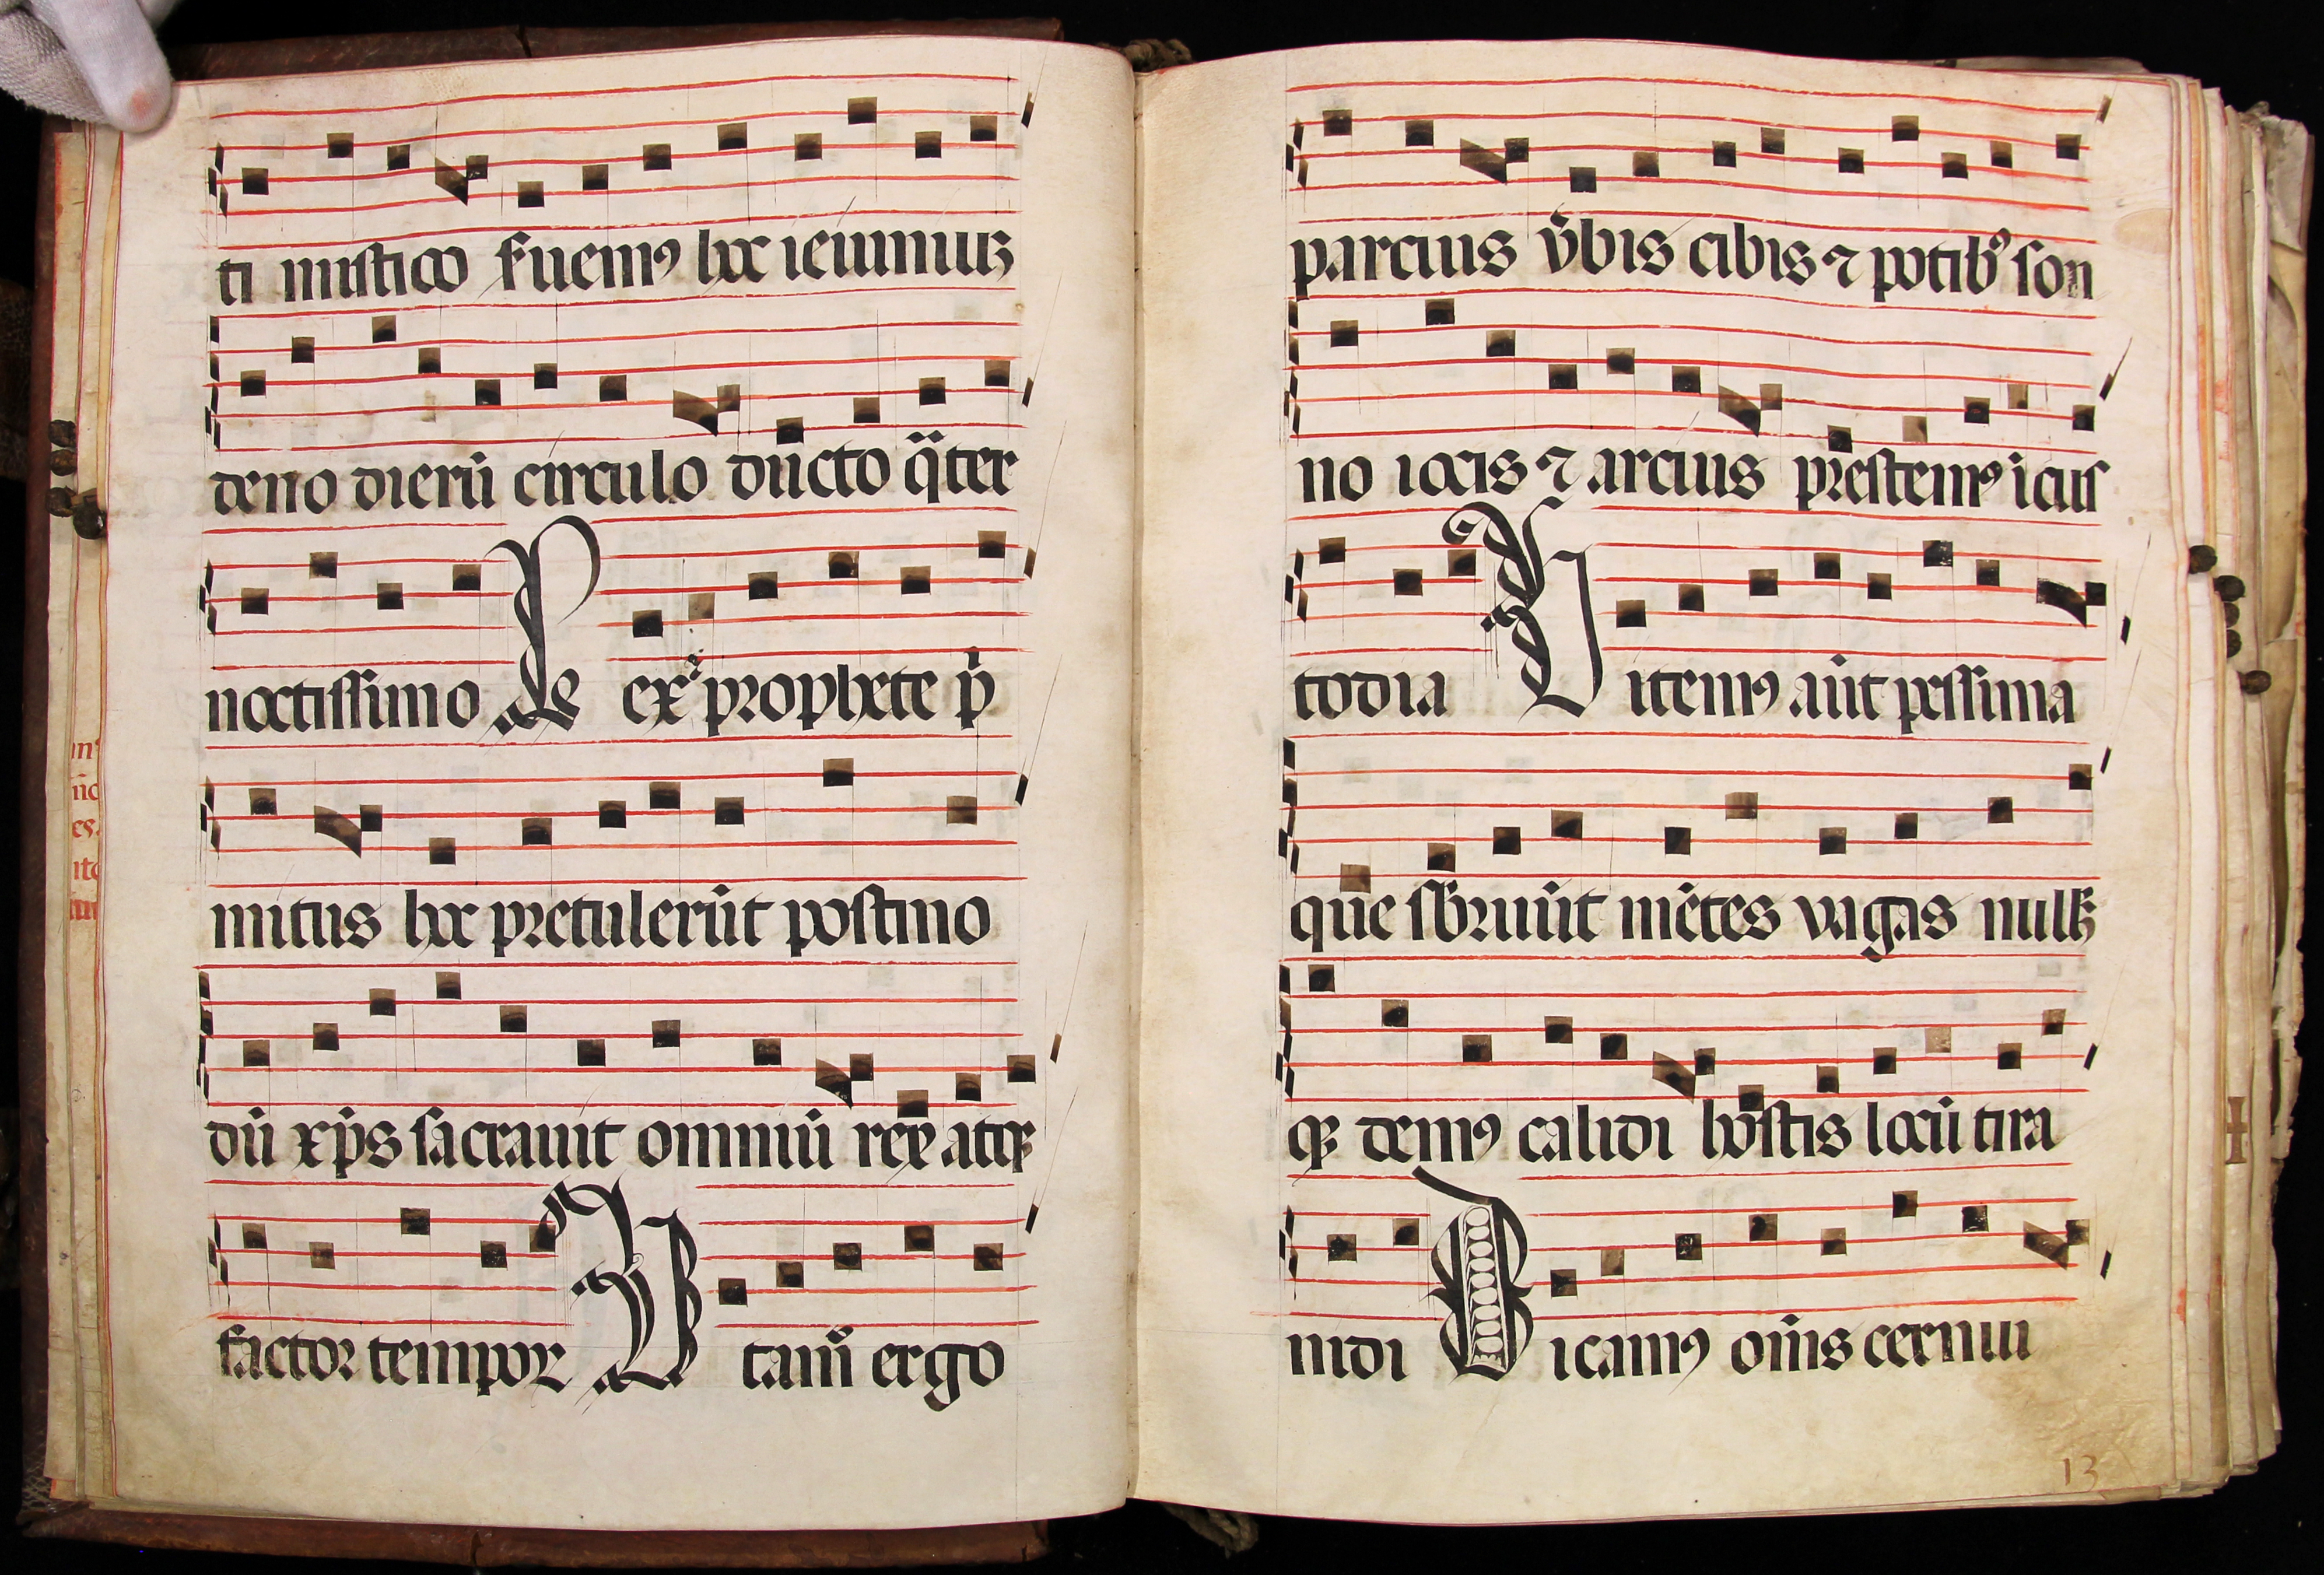 ti mistico ẜuemꝰ hoc ieiuniuꝫ
deno dierū circulo ducto q̈ter
noctissimo Le exˣ prophete p̄
mitus hoc pretulerūt postmo
dū xp̄s sacrauit omniū rex atqꝫ
factor tempoꝝ V tamᷣ ergo
parcius v̄bis cibis ⁊ potibꝰ son
no iocis ⁊ arcius prestemꝰ i cus
todia V itemꝰ aūt pessima
que sb̄ruūt mētes vagas nullūqꝫ
qꝫ demꝰ calidi hostis locū tira
nidi D icamꝰ om̄s cernui
13